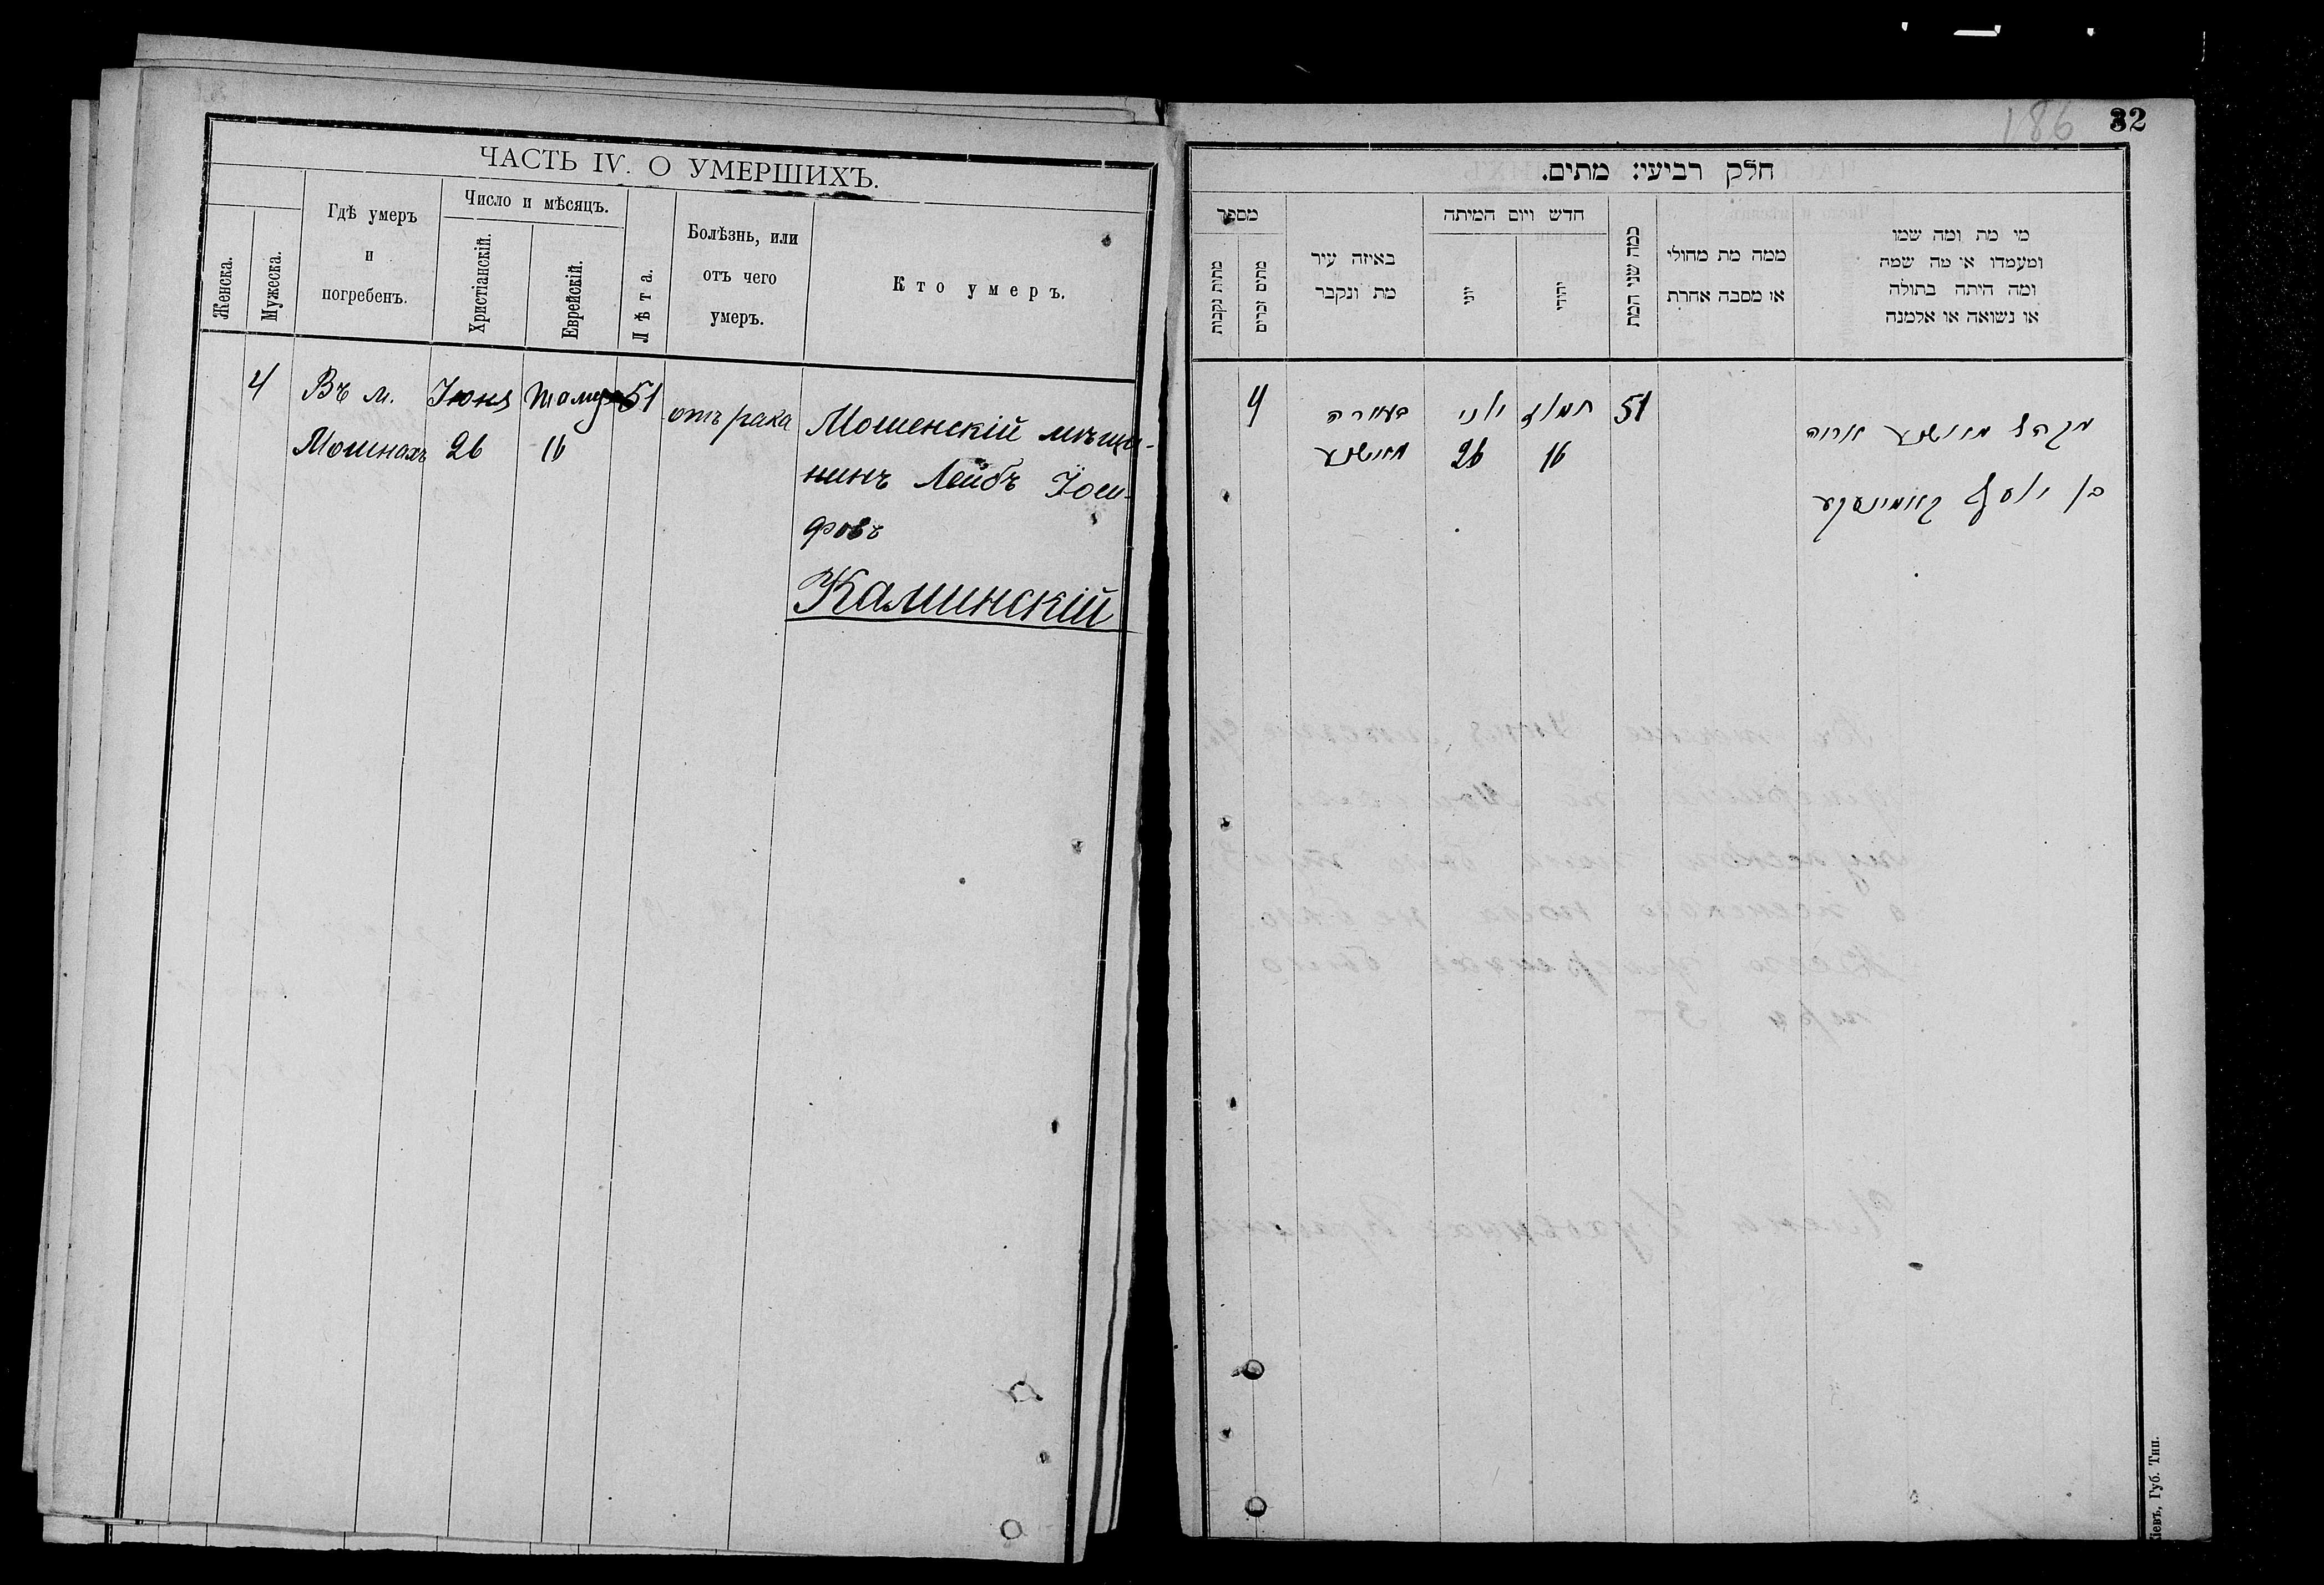 ЧАСТЬ IV. О УМЕРШИХЪ.
Женска.
Мужеска.
Гдѣ умеръ
и
погребенъ.
Число и мѣсяцъ.
Христіанскій.
Еврейскій.
Лѣта.
Болѣзнь, или
отъ чего
умеръ.
Кто умеръ.
4
Въ м.
Мошнахъ
Іюня
26
16
51
отъ рака
Мошенскій мѣща-
нинъ Лейбъ Іоси-
фовъ
Каминскій
186
32
חלק רביעי: מתים.
מספר
מתות נקבות
מתים זכרים
באיזה עיר
מת ונקבר
חדש ויום המיתה
יוני
יהודי
כמה שני המת
ממה מת מחולי
או מסבה אחרת
מי מת ומה שמו
ומעמדו או מה שמה
ומה היתה בתולה
או נשואה או אלמנה
4
מאשנע
יוני
26
תמוז
16
51
מקהל מאשנע
בן יוסף קאמינסקע
Кіевъ, Губ. Тип.